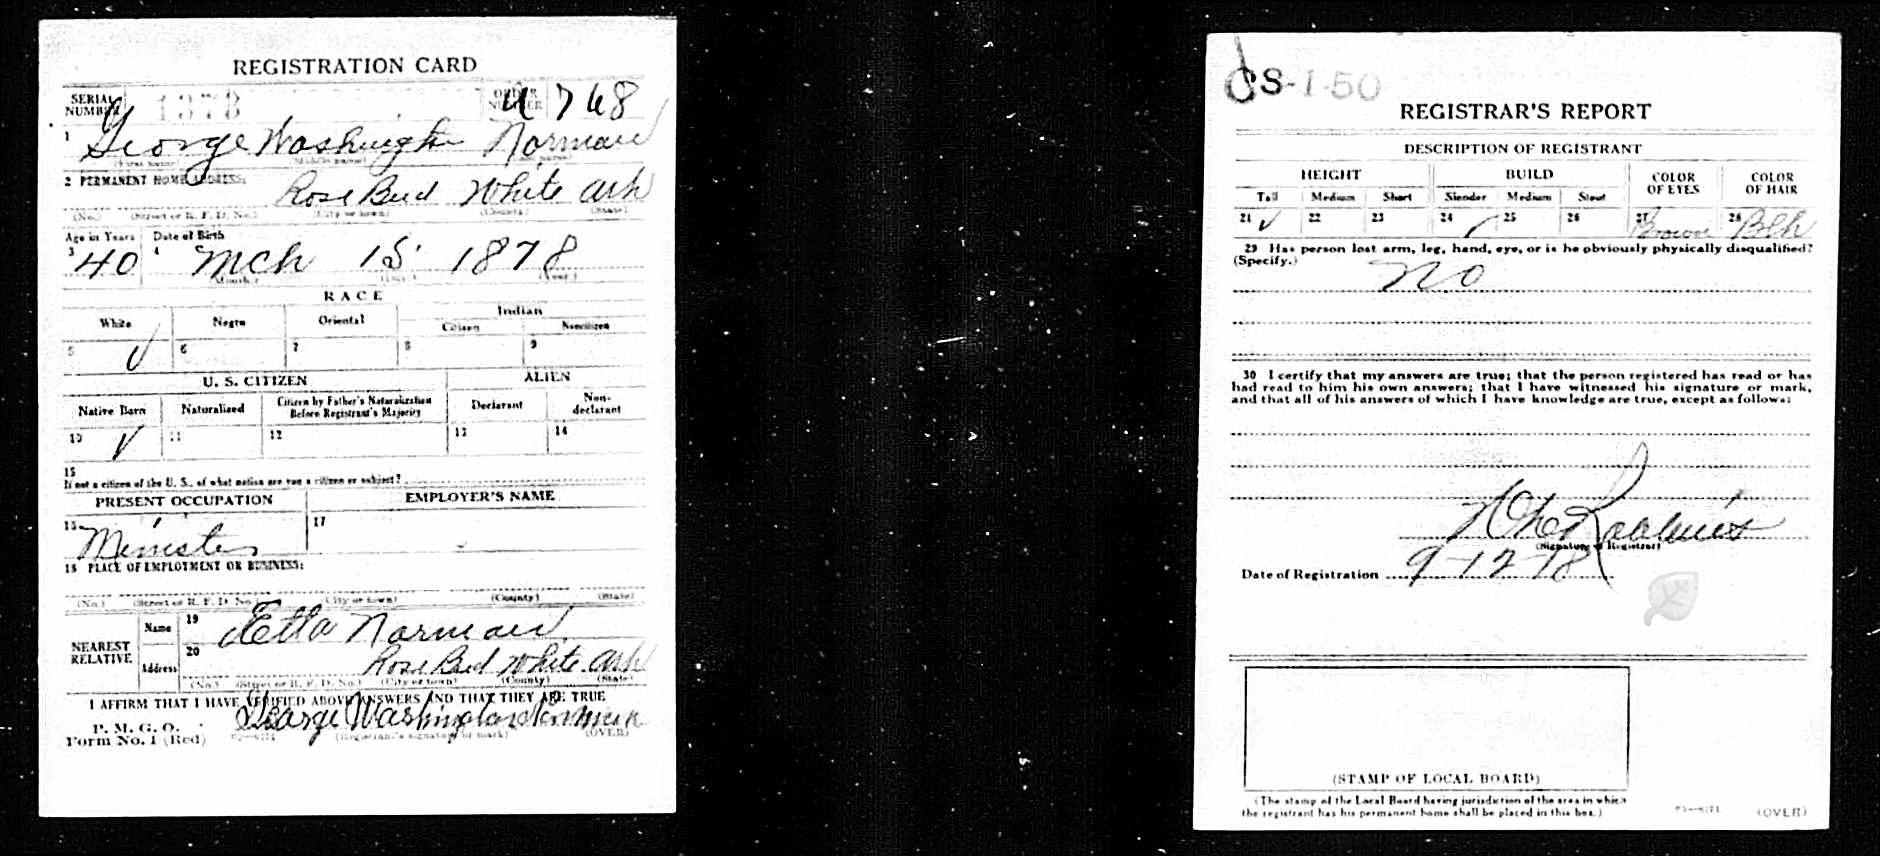 REGISTRATION CARD
SERIAL NUMBER 1373 ORDER NUMBER 4768
1 George Washington Norman
(First name) (Middle name) (Last name)
2 PERMANENT HOME ADDRESS:
Rose Bud White Ark
(No.) (Street or R. F. D. No.) (City or town) (County) (State)
Age in Years Date of Birth
3 40 4 Mch 15 1878
(Month.) (Day.) (Year.)
RACE
White Negro Oriental Indian
Citizen Noncitizen
5 ✓ 6 7 8 9
U. S. CITIZEN ALIEN
Native Born Naturalized Citizen by Father's Naturalization Before Registrant's Majority Declarant Non-declarant
10 ✓ 11 12 13 14
15
If not a citizen of the U. S., of what nation are you a citizen or subject?
PRESENT OCCUPATION EMPLOYER'S NAME
16 Minister 17
18 PLACE OF EMPLOYMENT OR BUSINESS:
(No.) (Street or R. F. D. No.) (City or town) (County) (State)
NEAREST RELATIVE
Name 19 Etta Norman
Address 20 Rose Bud White Ark
(No.) (Street or R. F. D. No.) (City or town) (County) (State)
I AFFIRM THAT I HAVE VERIFIED ABOVE ANSWERS AND THAT THEY ARE TRUE
P. M. G. O.
Form No. 1 (Red) George Washington Norman
(Registrant's signature or mark) (OVER)
CS-1-50
REGISTRAR'S REPORT
DESCRIPTION OF REGISTRANT
HEIGHT BUILD COLOR OF EYES COLOR OF HAIR
Tall Medium Short Slender Medium Stout
21 ✓ 22 23 24 ✓ 25 26 27 Brown 28 Blk
29 Has person lost arm, leg, hand, eye, or is he obviously physically disqualified?
(Specify.) No
30 I certify that my answers are true; that the person registered has read or has
had read to him his own answers; that I have witnessed his signature or mark,
and that all of his answers of which I have knowledge are true, except as follows:
(Signature of Registrar)
Date of Registration 9-12-18
(STAMP OF LOCAL BOARD)
(The stamp of the Local Board having jurisdiction of the area in which
the registrant has his permanent home shall be placed in this box.)
(OVER)